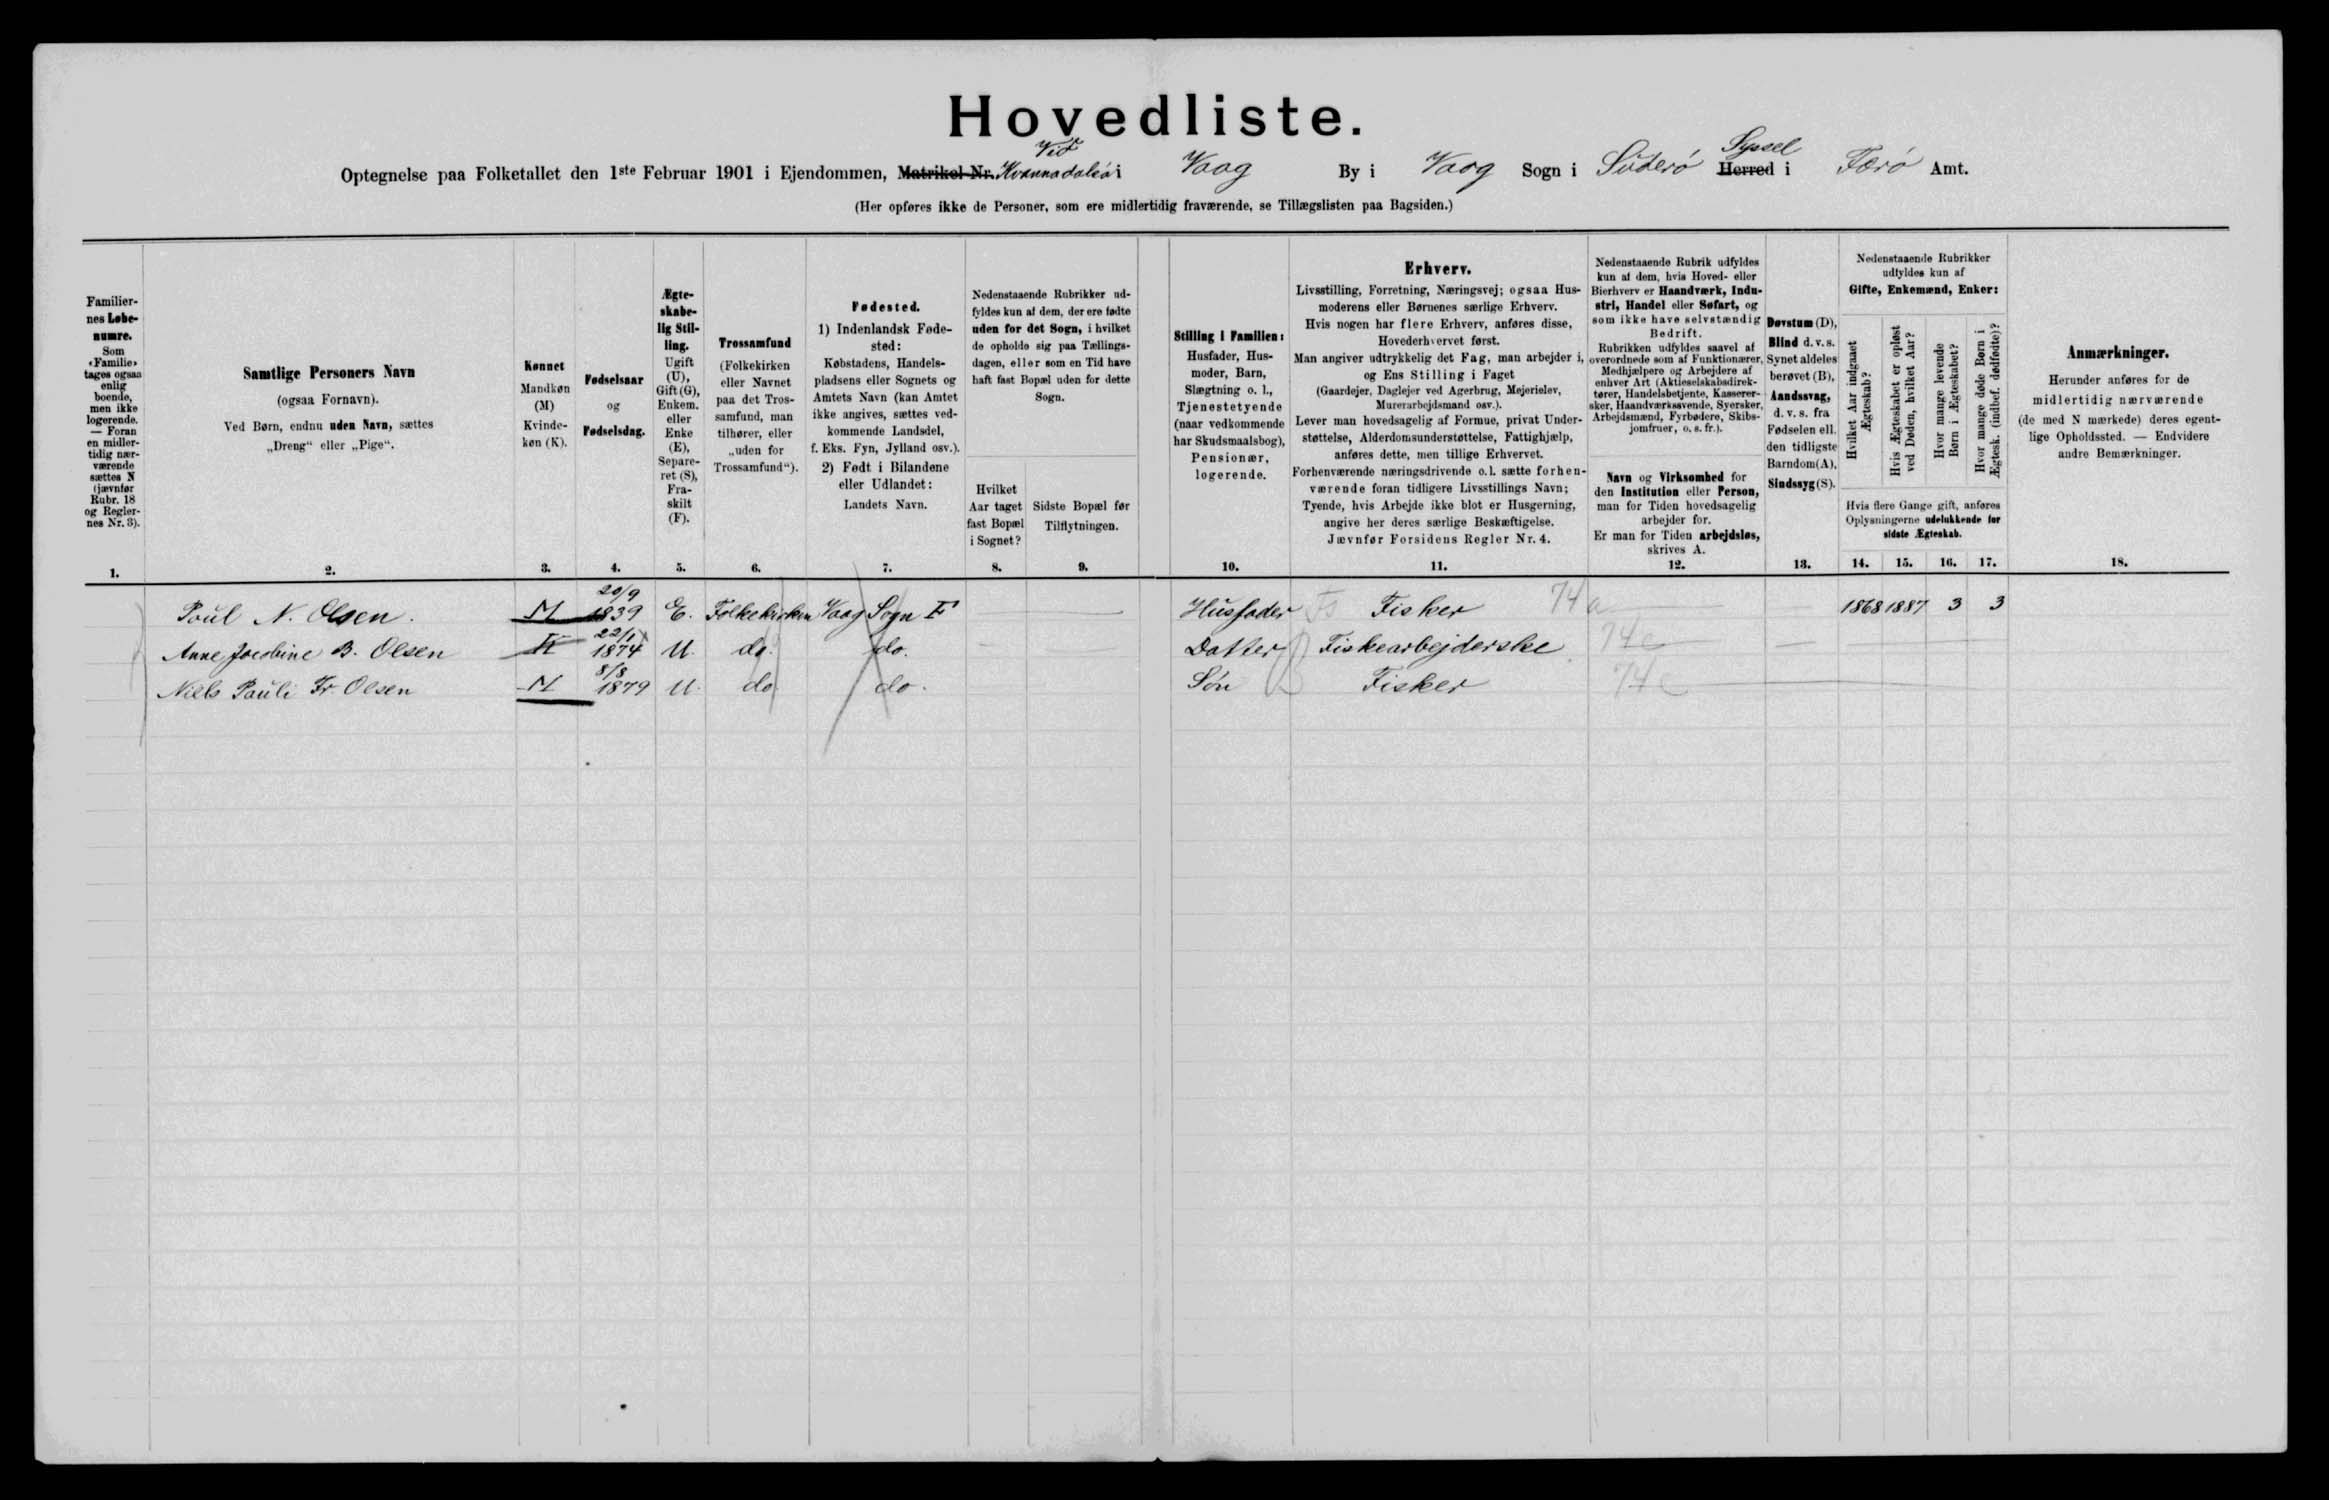 Hovedliste.
Optegnelse paa Folketallet den 1ste Februar 1901 i Ejendommen, Matrikel-Nr. Ved Kvannadalsá i Vaag By i Vaag Sogn i Süderö Herred Syssel i Færö Amt.
(Her opføres ikke de Personer, som ere midlertidig fraværende, se Tillægslisten paa Bagsiden.)
Familier-
nes Løbe-
numre.
Som
«Familie»
tages ogsaa
enlig
boende,
men ikke
logerende.
— Foran
en midler-
tidig nær-
værende
sættes N
(jævnfør
Rubr. 18
og Regler-
nes Nr. 3).
1.
Samtlige Personers Navn
(ogsaa Fornavn).
Ved Børn, endnu uden Navn, sættes
„Dreng“ eller „Pige“.
2.
Kønnet
Mandkøn
(M)
Kvinde-
køn (K).
3.
Fødselsaar
og
Fødselsdag.
4.
Ægte-
skabe-
lig Stil-
ling.
Ugift
(U),
Gift (G),
Enkem.
eller
Enke
(E),
Separe-
ret (S),
Fra-
skilt
(F).
5.
Trossamfund
(Folkekirken
eller Navnet
paa det Tros-
samfund, man
tilhører, eller
„uden for
Trossamfund“).
6.
Fødested.
1) Indenlandsk Føde-
sted:
Købstadens, Handels-
pladsens eller Sognets og
Amtets Navn (kan Amtet
ikke angives, sættes ved-
kommende Landsdel,
f. Eks. Fyn, Jylland osv.).
2) Født i Bilandene
eller Udlandet:
Landets Navn.
7.
Nedenstaaende Rubrikker ud-
fyldes kun af dem, der ere fødte
uden for det Sogn, i hvilket
de opholde sig paa Tællings-
dagen, eller som en Tid have
haft fast Bopæl uden for dette
Sogn.
Hvilket
Aar taget
fast Bopæl
i Sognet?
8.
Sidste Bopæl før
Tilflytningen.
9.
Stilling i Familien:
Husfader, Hus-
moder, Barn,
Slægtning o. l.,
Tjenestetyende
(naar vedkommende
har Skudsmaalsbog),
Pensionær,
logerende.
10.
Erhverv.
Livsstilling, Forretning, Næringsvej; ogsaa Hus-
moderens eller Børnenes særlige Erhverv.
Hvis nogen har flere Erhverv, anføres disse,
Hovederhvervet først.
Man angiver udtrykkelig det Fag, man arbejder i,
og Ens Stilling i Faget
(Gaardejer, Daglejer ved Agerbrug, Mejerielev,
Murerarbejdsmand osv.).
Lever man hovedsagelig af Formue, privat Under-
støttelse, Alderdomsunderstøttelse, Fattighjælp,
anføres dette, men tillige Erhvervet.
Forhenværende næringsdrivende o.l. sætte forhen-
værende foran tidligere Livsstillings Navn;
Tyende, hvis Arbejde ikke blot er Husgerning,
angive her deres særlige Beskæftigelse.
Jævnfør Forsidens Regler Nr. 4.
11.
Nedenstaaende Rubrik udfyldes
kun af dem, hvis Hoved- eller
Bierhverv er Haandværk, Indu-
stri, Handel eller Søfart, og
som ikke have selvstændig
Bedrift.
Rubrikken udfyldes saavel af
overordnede som af Funktionærer,
Medhjælpere og Arbejdere af
enhver Art (Aktieselskabsdirek-
tører, Handelsbetjente, Kasserer-
sker, Haandværkssvende, Syersker,
Arbejdsmænd, Fyrbødere, Skibs-
jomfruer, o. s. fr.).
Navn og Virksomhed for
den Institution eller Person,
man for Tiden hovedsagelig
arbejder for.
Er man for Tiden arbejdsløs,
skrives A.
12.
Døvstum (D),
Blind d. v. s.
Synet aldeles
berøvet (B),
Aandssvag,
d. v. s. fra
Fødselen ell.
den tidligste
Barndom (A),
Sindssyg (S).
13.
Nedenstaaende Rubrikker
udfyldes kun af
Gifte, Enkemænd, Enker:
Hvilket Aar indgaaet
Ægteskab?
Hvis Ægteskabet er opløst
ved Døden, hvilket Aar?
Hvor mange levende
Børn i Ægteskabet?
Hvor mange døde Børn i
Ægtesk. (indbef. dødfødte)?
Hvis flere Gange gift, anføres
Oplysningerne udelukkende for
sidste Ægteskab.
14. 15. 16. 17.
Anmærkninger.
Herunder anføres for de
midlertidig nærværende
(de med N mærkede) deres egent-
lige Opholdssted. — Endvidere
andre Bemærkninger.
18.
Poul N. Olsen. M 20/9 1839 E. Folkekirken Vaag Sogn F Husfader Fisker 74 a 1868 1887 3 3
Anne Jacobine B. Olsen K 22/1 1874 U. do. do. Datter Fiskearbejderske 74 c
Niels Pauli Fr Olsen M 8/8 1879 U. do do. Sön Fisker 74 c